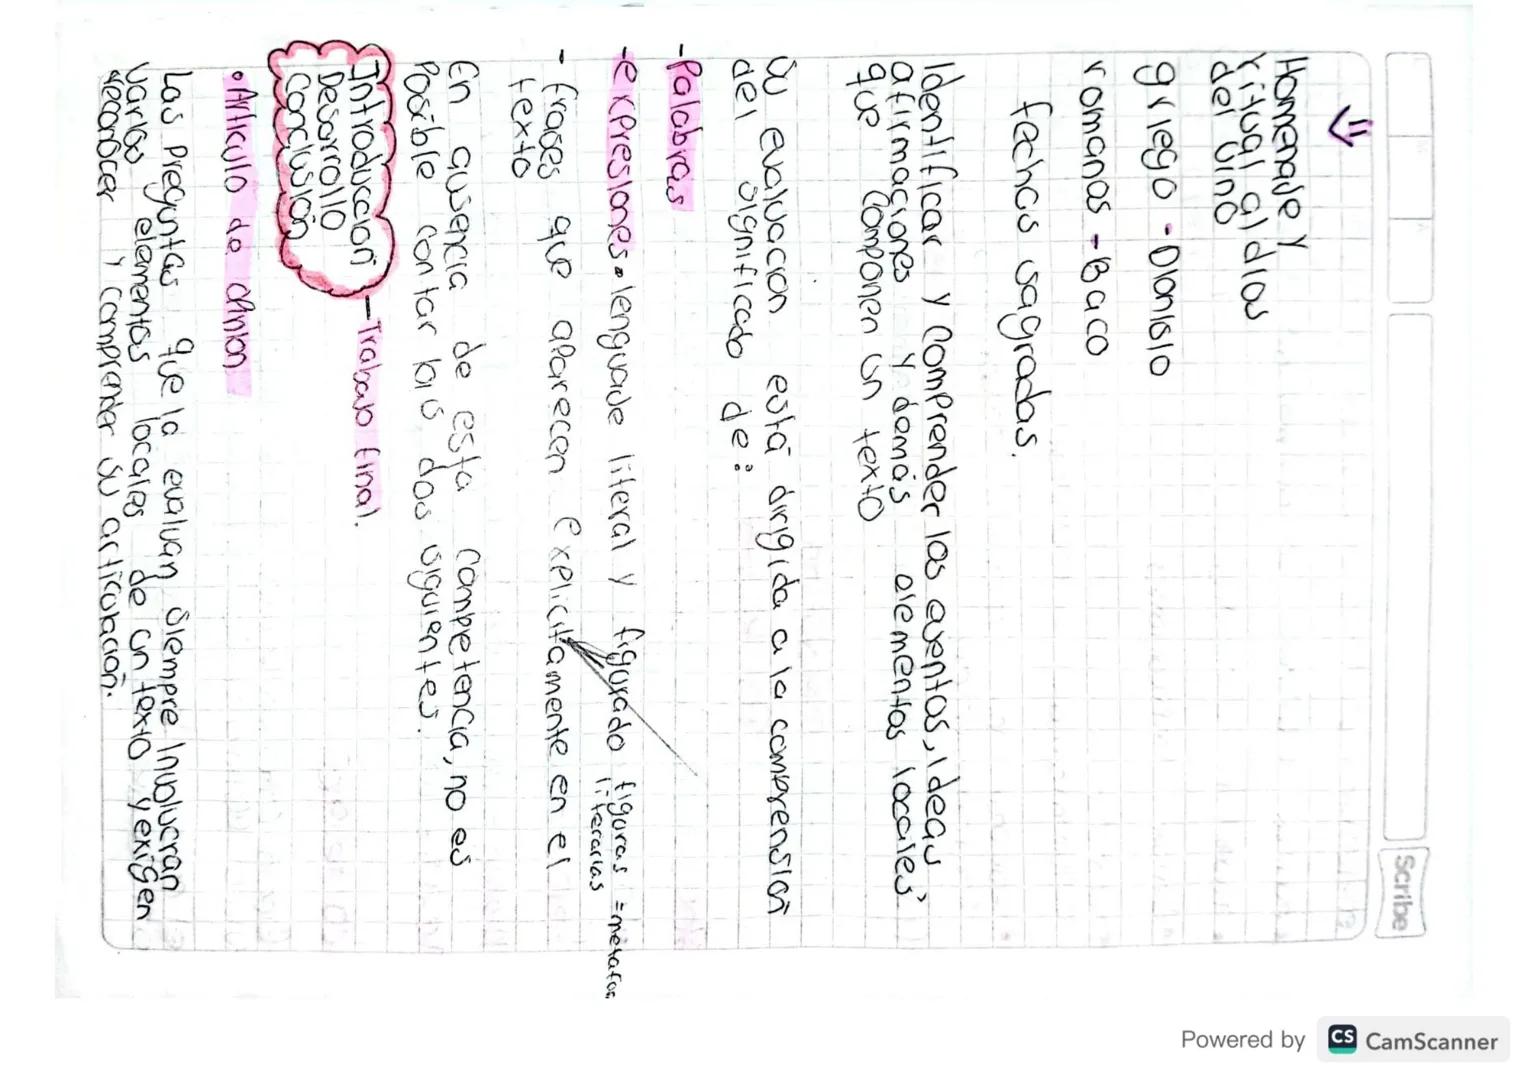 Scribe
Homenaje y
ritual al dios
del vino
griego - Dionisio
romanos - Baco
fechas sagradas.
Identificar y comprender los eventos, ideas
afirmaciones y demás elementos locales
que componen un texto
Su evaluación está dirigida a la comprensión
del significado de:
- Palabras
- expresiones = lenguaje literal y figurado figuras = metafor
literarias
- frases que aparecen explicitamente en el
texto
En ausencia de esta competencia, no es
Posible contar las dos siguientes.
Introducción
Desarrollo
Conclusión
- Trabajo final.
• Artículo de opinion
Las preguntas que la evaluan siempre involucran
varios elementos locales de un texto y exigen
reconocer y comprender su articulación.
Powered by CS CamScanner